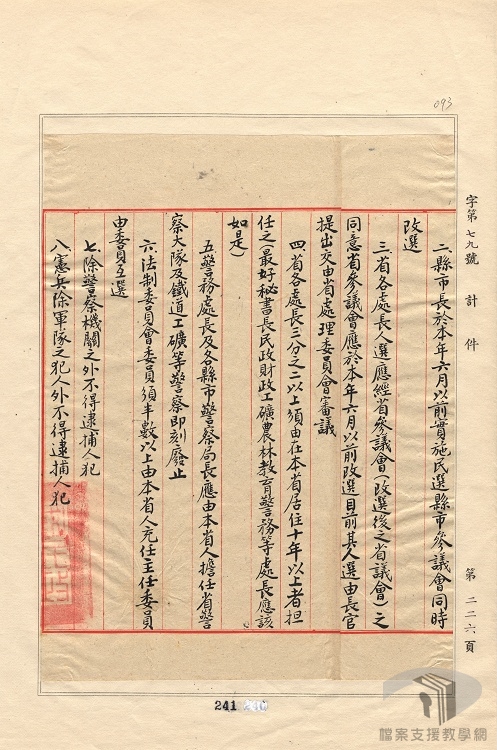 093
字第七九號 計 件 第二二六頁
二縣市長於本年六月以前實施民選縣市參議會同時
改選
三省各處長人選應經省參議會(改選後之省議會)之
同意省參議會應於本年六月以前改選目前其人選由長官
提出交由省處理委員會審議
四省各處長三分之二以上須由在本省居住十年以上者担
任之(最好秘書長民政財政工礦農林教育警務等處長應該
如是)
五警務處長及各縣市警察局長應由本省人擔任省警
察大隊及鐵道工礦等警察即刻廢止
六法制委員會委員須半數以上由本省人充任主任委員
由委員互選
七除警察機關之外不得逮捕人犯
八憲兵除軍隊之犯人外不得逮捕人犯
241
檔案支援教學網